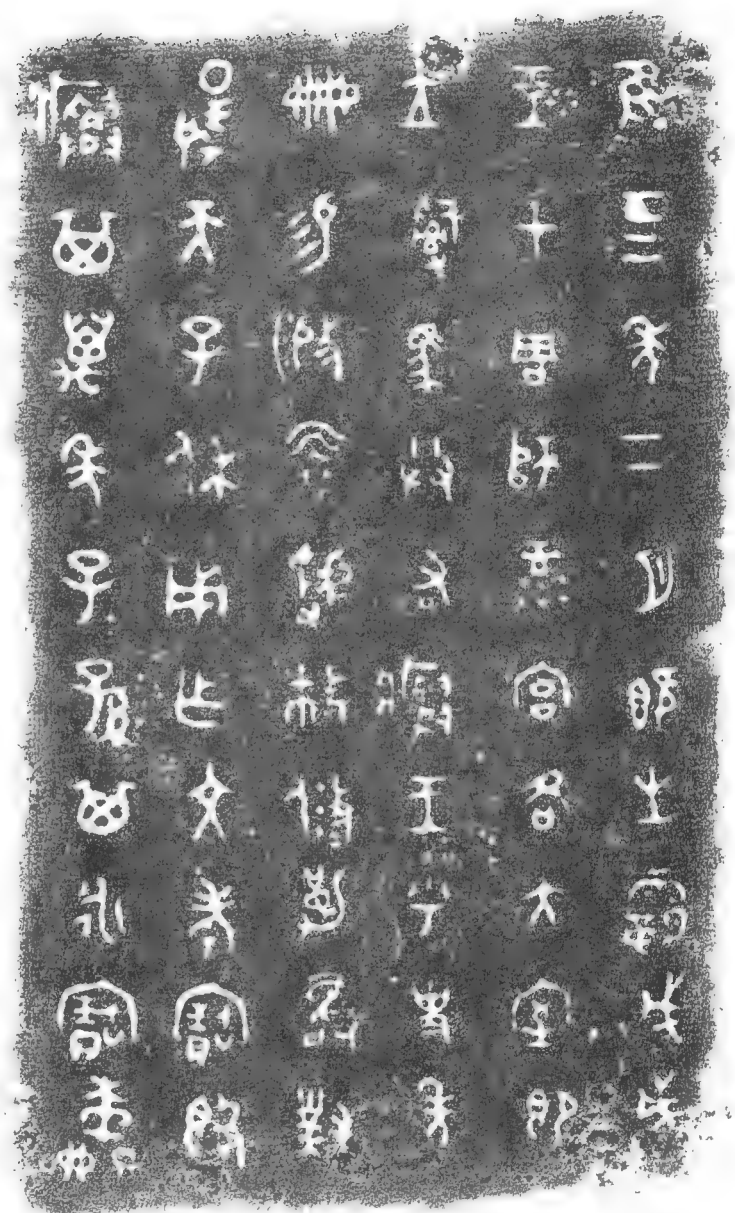 隹四年二月既生霸戊戌
王才周師彔宮各大室即
立司馬共右𤼈王乎史年
冊易攸勒敢對
揚天子休用乍文考寶𣪘
𤼈其萬年子孫其永寶木羊冊